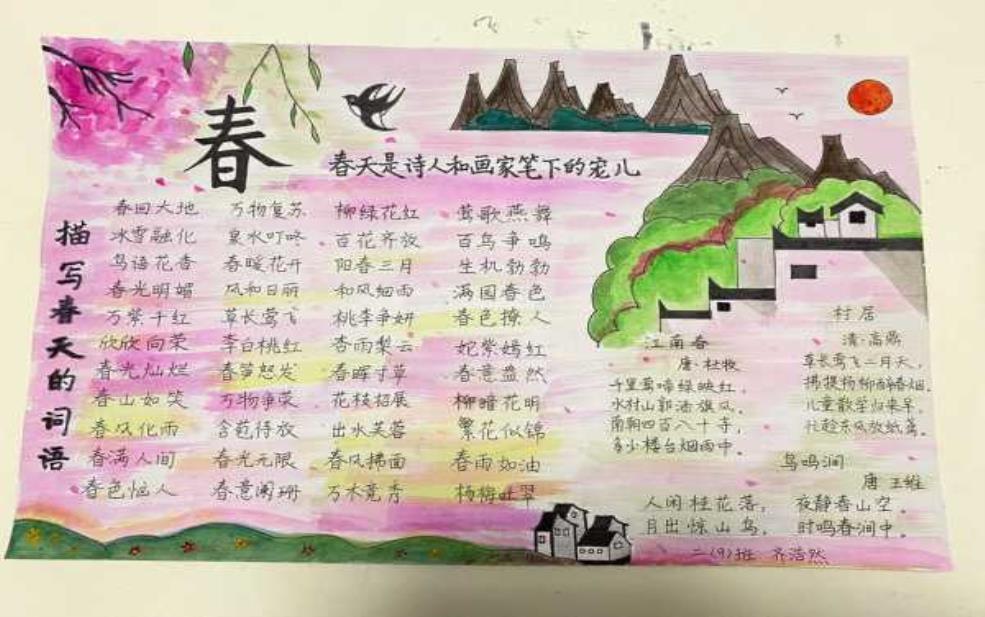 春
春天是诗人和画家笔下的宠儿
描写春天的词语
春回大地 万物复苏 柳绿花红 莺歌燕舞
冰雪融化 泉水叮咚 百花齐放 百鸟争鸣
鸟语花香 春暖花开 阳春三月 生机勃勃
春光明媚 风和日丽 和风细雨 满园春色
万紫千红 草长莺飞 桃李争妍 春色撩人
欣欣向荣 李白桃红 杏雨梨云 姹紫嫣红
春光灿烂 春笋怒发 春晖寸草 春意盎然
春山如笑 万物争荣 花枝招展 柳暗花明
春风化雨 含苞待放 出水芙蓉 繁花似锦
春满人间 春光无限 春风拂面 春雨如油
春色恼人 春意阑珊 万木竞秀 杨梅吐翠
江南春
唐·杜牧
千里莺啼绿映红,
水村山郭酒旗风。
南朝四百八十寺,
多少楼台烟雨中。
村居
清·高鼎
草长莺飞二月天,
拂提杨柳醉春烟。
儿童散学归来早,
忙趁东风放纸鸢。
鸟鸣涧
唐 王维
人闲桂花落, 夜静春山空。
月出惊山鸟, 时鸣春涧中。
二(9)班 齐浩然